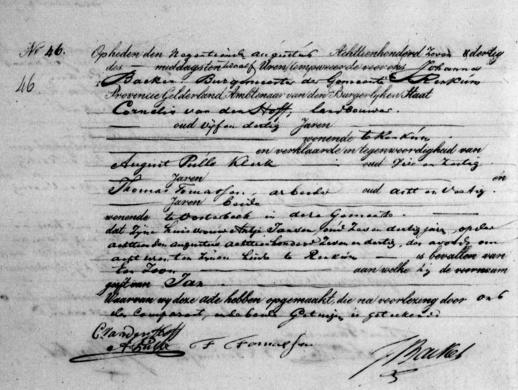 No 46.
46
Opheden den Negentienden augustus Achttienhonderd Zeven & dertig
des middags ten twaalf Uren, compareerde voor ons Johannes
Backer Burgemeester der Gemeente Renkum
Provincie Gelderland Ambtenaar van den Burgerlijken Staat
Cornelis van der Hoff, landbouwer
oud vijf en dertig Jaren
wonende te Renkum
en verklaarde in tegenwoordigheid van
August Pulle Klerk oud Zes en dertig
Jaren en
Thomas Tomassen, arbeider oud acht en Veertig
Jaren Beide
wonende te Oosterbeek in deze Gemeente
dat Zijne Huisvrouw Jansen oud Zeven dertig jaren, op den
achttienden augustus achttienhonderd Zeven en dertig, des avonds om
acht uren ten Zijnen te Renkum is bevallen van
Een Zoon aan welke hij de voornaam
geeft van Jan
Waarvan wij deze acte hebben opgemaakt, die na voorlezing door ons
den Comparant, en Getuigen is geteekend
C. van der Hoff
A Pulle T Tomassen J Backer